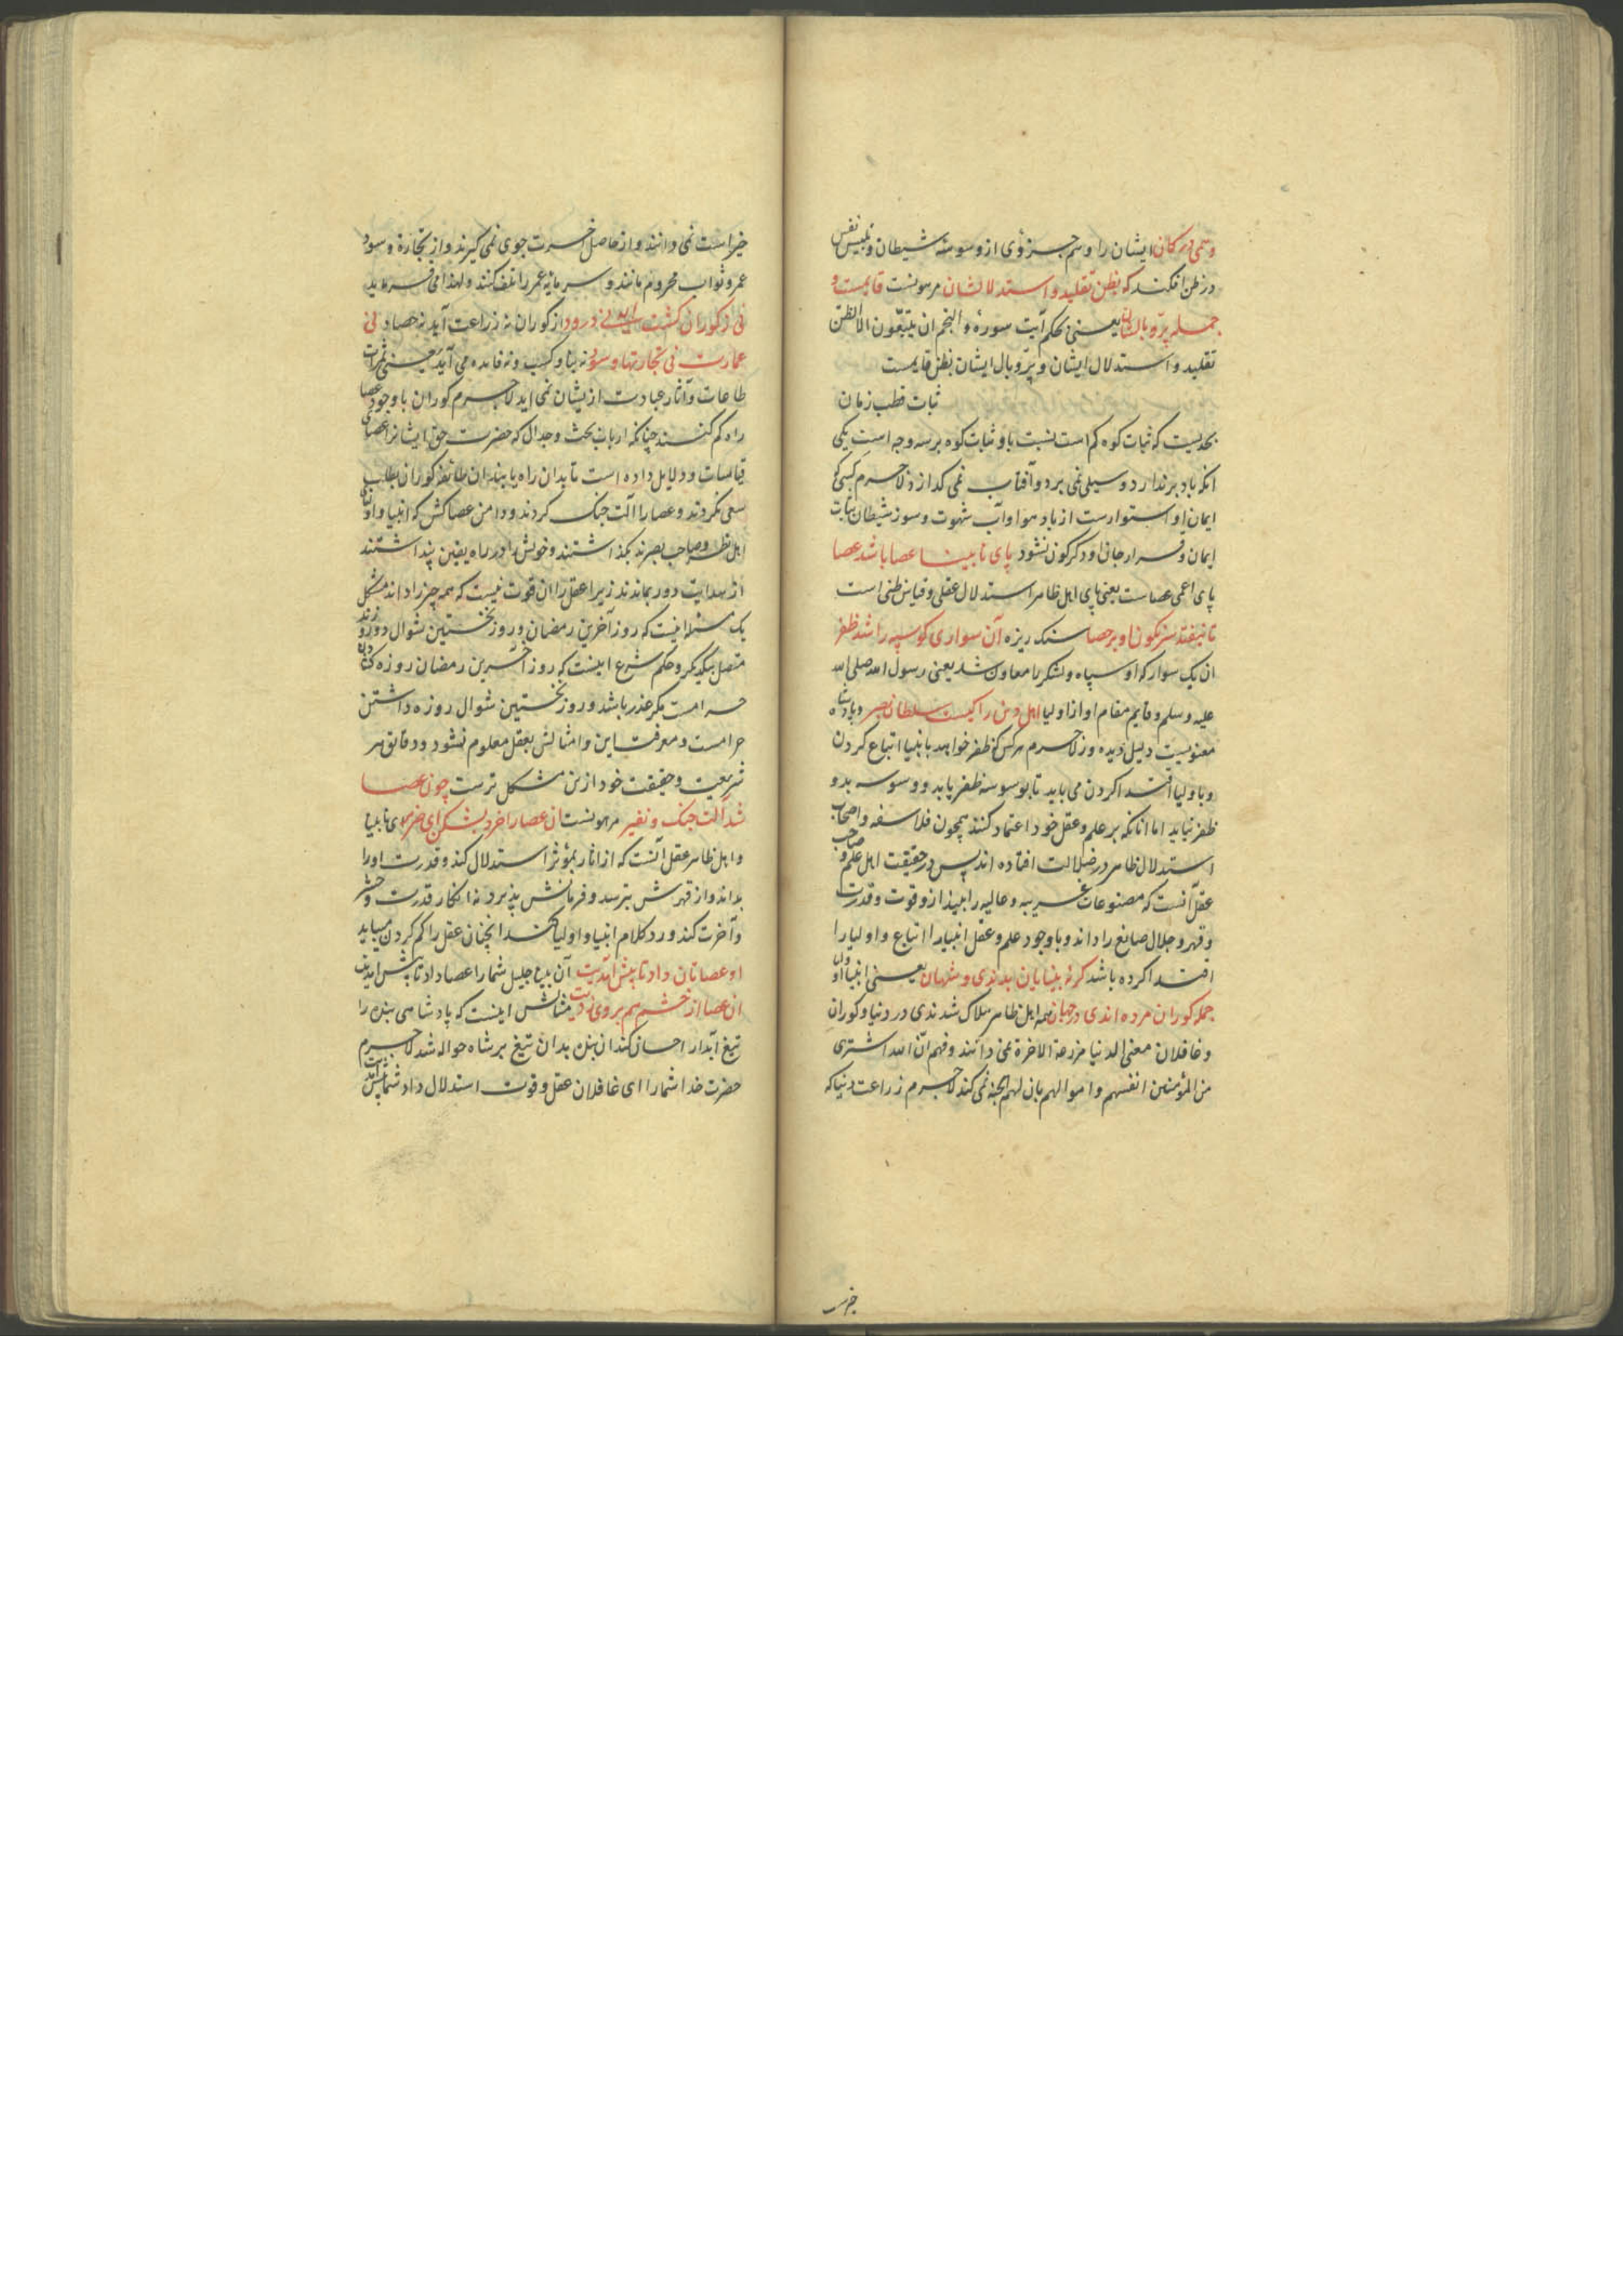 وهمی در کمان ایشان را وهم جزؤی از وسوسهٔ شیطان و تلبیس نفس
در ظن افکند که بظن تقلید و استدلالشان مرهونست قایمست و
جمله پر و بالشان یعنی بحکم آیت سورهٔ والنجم ان یتبعون الا الظن
تقلید و استدلال ایشان و پر و بال ایشان بظن قایمست
ثبات قطب زمان
بحدیست که ثبات کوه کم است نسبت باو و ثبات کوه بر سه وجه است یکی
انکه باد برندارد و سیلی نمی برد و آفتاب نمی کدازد لاجرم کسی که
ایمان او استوارست از باد هوا و آب شهوت و سوز شیطان ثبات
ایمان و قرار جان او دکرکون نشود پای نابینا عصا باشد عصا
پای اعمی عصاست یعنی پای اهل ظاهر استدلال عقلی و قیاس ظنی است
تا نیفتد سرنکون او بر حصا سنک ریزه آن سواری کو سپه را شد ظفر
ان یک سوار که او سپاه و لشکر را معاون شد یعنی رسول الله صلی الله
علیه وسلم و قایم مقام او از اولیا اهل دین را کیست سلطان بصر و پادشاه
معنویست دلیل دیده ور لاجرم هرکس که ظفر خواهد بانبیا اتباع کردن
و باولیا اقتدا کردن می باید تا بوسوسه ظفر یابد و وسوسه بدو
ظفر نیابد اما انانکه بر علم و عقل خود اعتماد کنند همچون فلاسفه و اصحاب
استدلال ظاهر در ضلالت افتاده اند پس در حقیقت اهل علم و صاحب
عقل آنست که مصنوعات غریبه و عالیه را بیند از و قوت و قدرت
و قهر و جلال صانع را داند و با وجود علم و عقل انبیا را اتباع و اولیا را
اقتدا کرده باشد کرنه بینایان بدندی و شهان یعنی انبیا و اولیا
جمله کوران مرده اندی در جهان همه اهل ظاهر هلاک شدندی در دنیا و کوران
و غافلان معنی الدنیا مزرعة الاخرة نمی دانند و فهم ان الله اشتری
من المؤمنین انفسهم و اموالهم بان لهم الجنة نمی کند لاجرم زراعت دنیا که
خیر است نمی دانند و از حاصل آخرت جوی نمی کیرند و از تجارة و سود
عمر و ثواب محروم مانند و سرمایهٔ عمر را تلف کنند و لهذا می فرماید
نی ز کوران کشت آید نی درود از کوران نه زراعت آید نه حصاد نی
عمارت نی تجارتها و سود نه بنا و کسب و نه فایده می آید یعنی ثمرات
طاعات و آثار عبادت ازیشان نمی اید لاجرم کوران با وجود عصا
راه کم کنند چنانکه ارباب بحث و جدال که حضرت حق ایشانرا عصای
قیاسات و دلایل داده است تا بدان راه یابند ان طایفه کوران بطلب
سعی نکردند و عصا را آلت جنک کردند و دامن عصاکش که انبیا و اولیا
اهل نظر و صاحب بصرند بکذاشتند و خویش را در راه یقین پنداشتند
از هدایت دور بماندند زیرا عقل را ان قوت نیست که همه چیز را داند مشکل
یک مسئله اینست که روز آخرین رمضان و روز نخستین شوال دو روزند
متصل بیکدیکر و حکم شرع اینست که روز آخرین رمضان روزه کشادن
حرامست مکر عذر باشد و روز نخستین شوال روزه داشتن
حرامست و معرفت این و امثالش بعقل معلوم نشود و دقایق هر
شریعت و حقیقت خود ازین مشکل ترست چون عصا
شد آلت جنک و نفیر مرهونست ان عصا را خرد بشکن ای ضریر ای نابینا
و اهل ظاهر عقل آنست که از اثار بمؤثر استدلال کند و قدرت او را
بداند و از قهرش بترسد و فرمانش پذیرد نه انکار قدرت و حشر
و آخرت کند و رد کلام انبیا و اولیا کند انچنان عقل را کم کردن میباید
او عصاتان داد تا پیش آمدیت آن بینا جلیل شما را عصا داد تا پیش امدیت
ان عصا از خشم هم بر وی زدیت مثالش اینست که پادشاهی بنده را
تیغ آبدار احسان کند ان بنده بدان تیغ بر شاه حواله شد لاجرم
حضرت خدا شما را ای غافلان عقل و قوت استدلال داد شما پیش آمدیت
خیرست